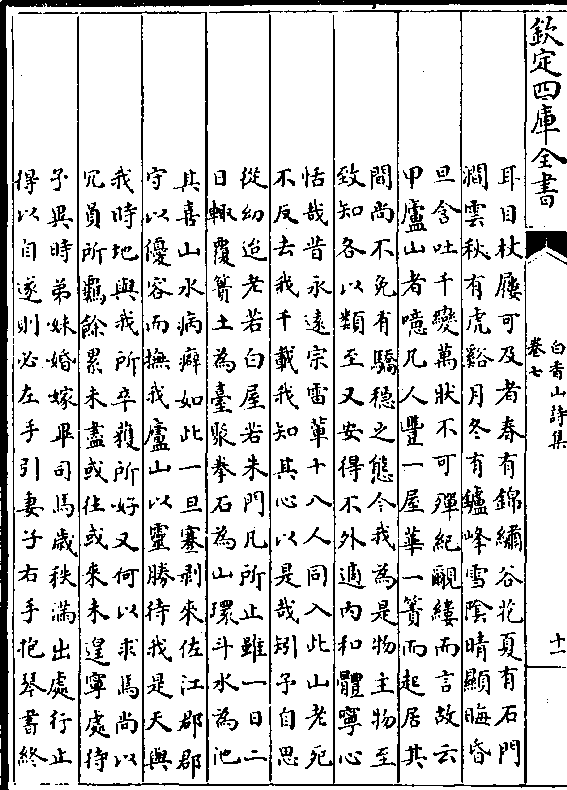 欽定四庫全書
白香山詩集
卷七
十一
耳目杖屨可及者春有錦繡谷花夏有石門
澗雲秋有虎谿月冬有鑪峰雪陰晴顯晦昏
旦含吐千變萬狀不可殫紀覼縷而言故云
甲廬山者噫凡人豐一屋華一簀而起居其
間尚不免有驕穩之態今我為是物主物至
致知各以類至又安得不外適內和體寧心
恬哉昔永遠宗雷軰十八人同入此山老死
不反去我千載我知其心以是哉矧予自思
從幼迨老若白屋若朱門凡所止雖一日二
日輙覆簣土為臺聚拳石為山環斗水為池
其喜山水病癖如此一旦蹇剥來佐江郡郡
守以優容而撫我廬山以靈勝待我是天與
我時地與我所卒獲所好又何以求焉尚以
冗員所羈餘累未盡或往或來未遑寧處待
予異時弟妹婚嫁畢司馬歲秩滿出處行止
得以自遂則必左手引妻子右手抱琴書終